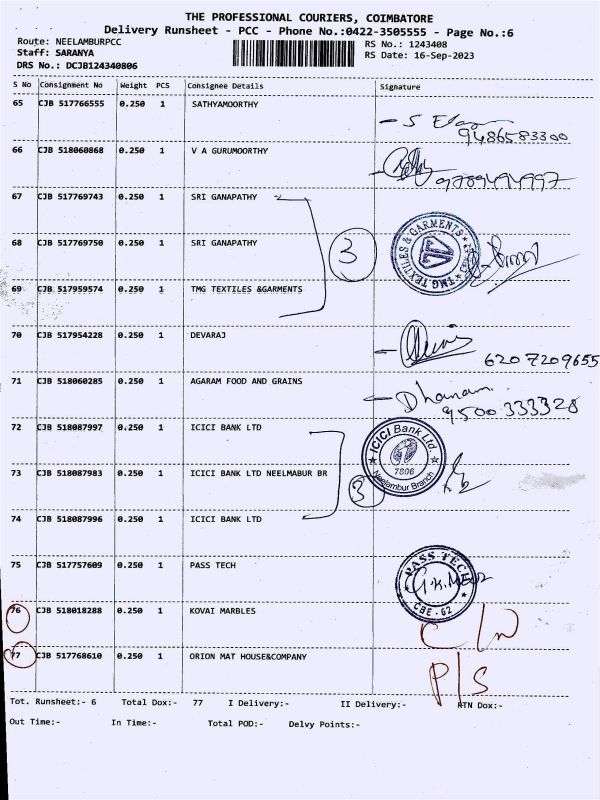 THE PROFESSIONAL COURIERS, COIMBATORE
Delivery Runsheet - PCC - Phone No.:0422-3505555 - Page No.:6
Route: NEELAMBURPCC RS No.: 1243408
Staff: SARANYA RS Date: 16-Sep-2023
DRS No.: DCJB124340806
S No Consignment No Weight PCS Consignee Details Signature
65 CJB 517766555 0.250 1 SATHYAMOORTHY
9486583300
66 CJB 518060868 0.250 1 V A GURUMOORTHY
9789494997
67 CJB 517769743 0.250 1 SRI GANAPATHY
68 CJB 517769750 0.250 1 SRI GANAPATHY
3
TMG TEXTILES & GARMENTS
69 CJB 517959574 0.250 1 TMG TEXTILES &GARMENTS
70 CJB 517954228 0.250 1 DEVARAJ
6207209655
71 CJB 518060285 0.250 1 AGARAM FOOD AND GRAINS
Dhanam
9500333328
72 CJB 518087997 0.250 1 ICICI BANK LTD
ICICI Bank Ltd.
7806
Neelambur Branch
73 CJB 518087983 0.250 1 ICICI BANK LTD NEELMABUR BR
3
74 CJB 518087996 0.250 1 ICICI BANK LTD
75 CJB 517757609 0.250 1 PASS TECH
PASS TECH
CBE - 62
76 CJB 518018288 0.250 1 KOVAI MARBLES
C/N
77 CJB 517768610 0.250 1 ORION MAT HOUSE&COMPANY
P/S
Tot. Runsheet:- 6 Total Dox:- 77 I Delivery:- II Delivery:- RTN Dox:-
Out Time:- In Time:- Total POD:- Delvy Points:-